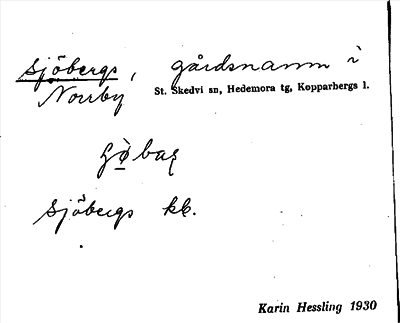 Sjöbergs, gårdsnamn i
Norrby St. Skedvi sn, Hedemora tg, Kopparbergs l.
Sjöbergs kk.
Karin Hessling 1930